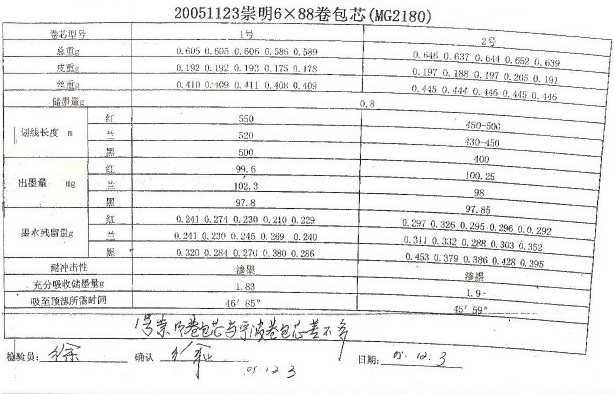 20051123崇明6×88卷包芯(MG2180)
卷芯型号 1号 2号
总重g 0.605 0.605 0.606 0.586 0.589 0.646 0.637 0.644 0.652 0.639
皮重g 0.192 0.192 0.193 0.175 0.178 0.197 0.188 0.197 0.205 0.191
丝重g 0.410 0.409 0.411 0.408 0.409 0.445 0.444 0.446 0.445 0.446
储墨量g 0.8
划线长度 m 红 550 450-500
兰 520 430-450
黑 500 400
出墨量 mg 红 99.6 100.25
兰 102.3 98
黑 97.8 97.85
墨水残留量g 红 0.241 0.274 0.230 0.210 0.229 0.297 0.326 0.295 0.296 0.0.292
兰 0.241 0.230 0.246 0.269 0.240 0.311 0.332 0.288 0.303 0.352
黑 0.320 0.284 0.276 0.380 0.286 0.453 0.379 0.386 0.428 0.395
耐冲击性 渗墨 渗墨
充分吸收储墨量g 1.83 1.9
吸至顶部所需时间 46′ 85″ 45′ 59″
1号崇明卷包芯与宁波卷包芯差不多
检验员: 确认 日期: 05.12.3
05.12.3